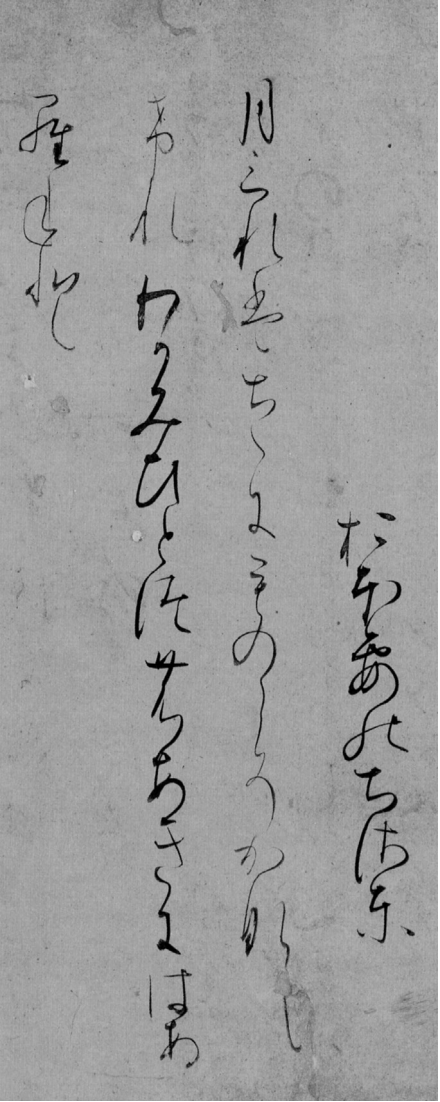 おほえのちさと
月みれはちゝにものこそかなし
けれわかみひとつのあきにはあ
らねと